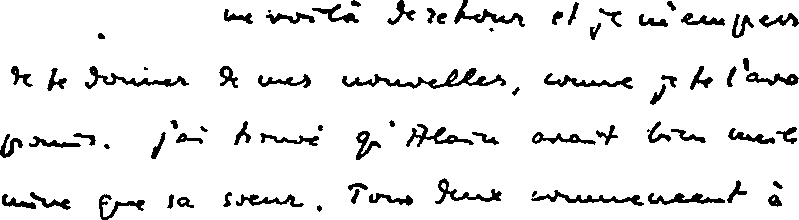 me voilà de retour et je m'empress
de te donner de mes nouvelles, comme je te l'avais
promis. J'ai trouvé qu'Alain avait bien meill
mine que sa soeur. Tous deux commencent à